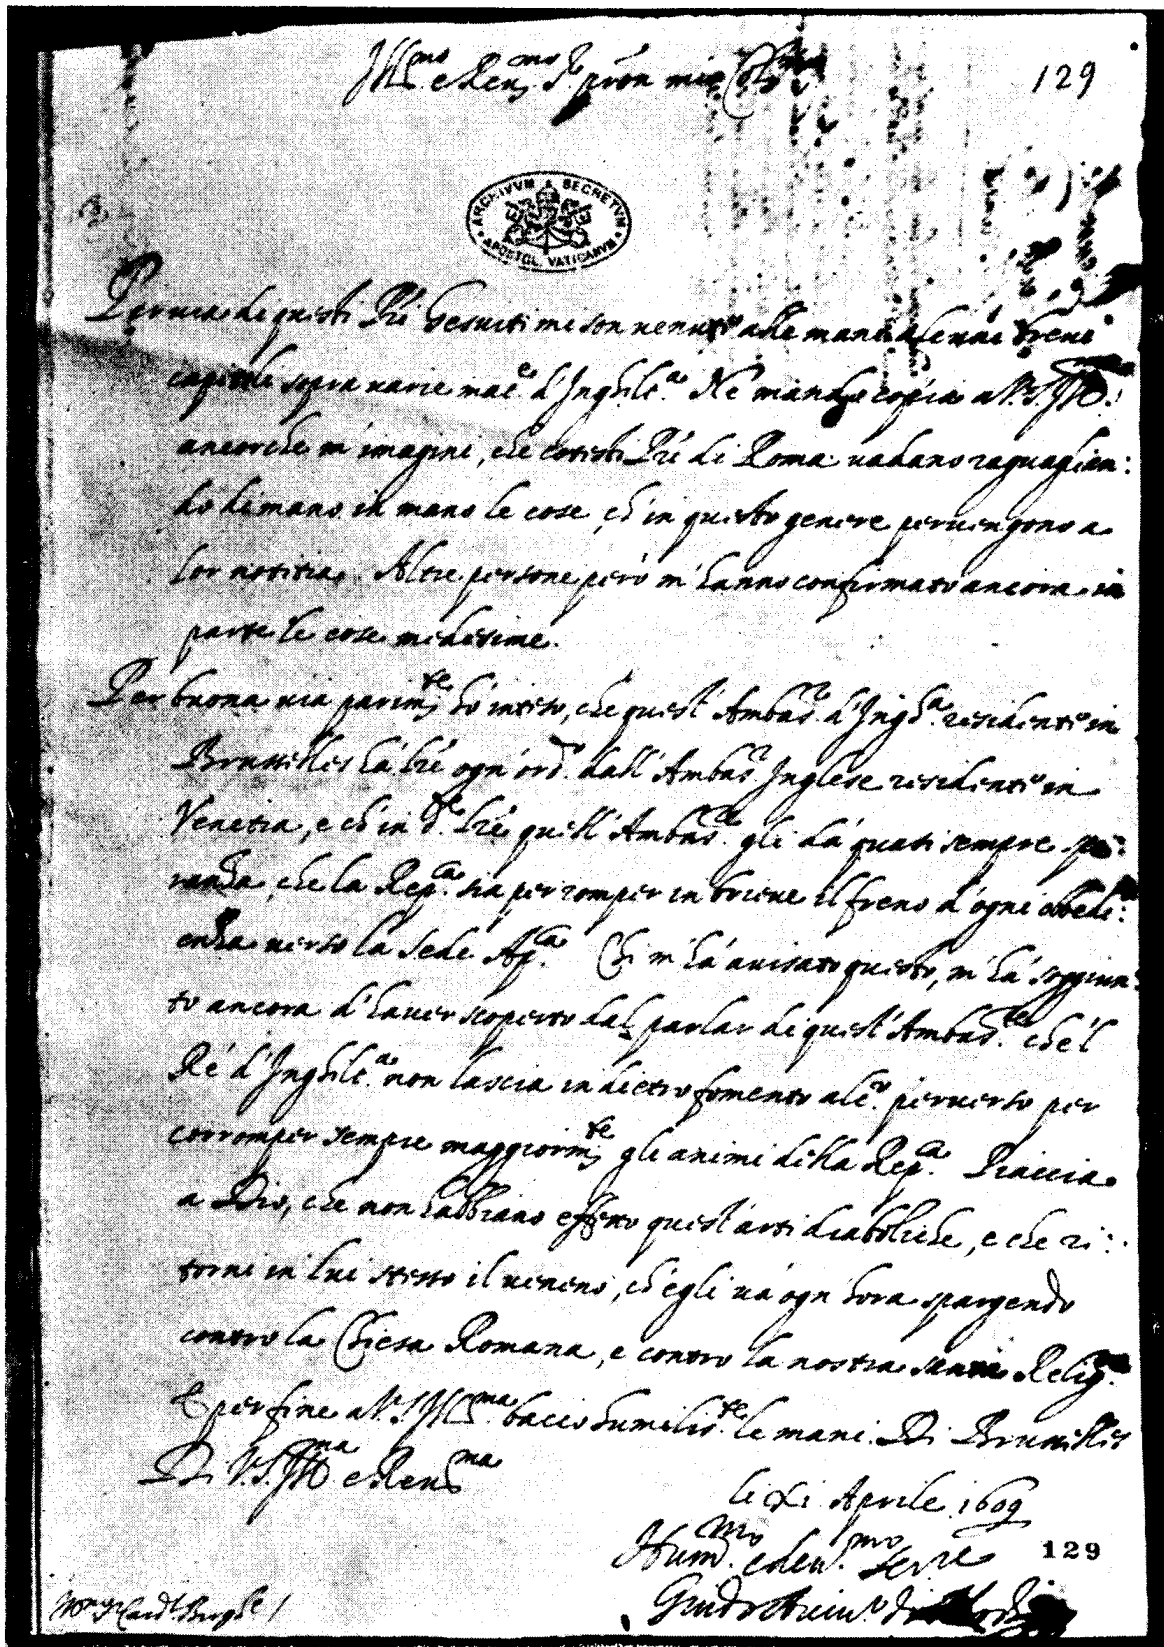 Ill.mo e Reu.mo S.r pron mio
129
ARCHIVVM SECRETVM
APOSTOL. VATICANVM
Per uia di questi P̃ri Gesuiti mi son uenute alle mani alcuni breui
capitoli sopra uarie mat.e d'Inghilt.a Ne mando copia a V.S. Ill.
ancorche m'imagini, che cotesti P̃ri di Roma uadano raguaglian:
do di mano in mano le cose, ch'in questo genere peruengono a
lor notitia. Altre persone però m'hanno confirmato ancora in
parte le cose medesime.
Per buona uia parim.te hò inteso, che quest'Ambas.re d'Ingh.a residente in
Brusselles hà l̃re ogn'ord.o dall'Ambas.r Inglese residente in
Venetia, e ch'in d.e l̃re quell'Ambas.re gli dà quasi sempre spe:
ranza, che la Rep.ca sia per romper in brieue il freno d'ogni obedi:
enza uerso la Sede Ap.ca Chi m'hà auisato questo, m'hà soggiun:
to ancora d'hauer scoperto dal parlar di quest'Ambas.re che'l
Rè d'Inghilt.a non lascia in dietro fomento alc.o peruerso per
corromper sempre maggiorm.te gli animi della Rep.ca Piaccia
a Dio, che non habbiano effetto quest'arti diaboliche, e che ri:
torni in lui stesso il ueneno, ch'egli uà ogn'hora spargendo
contro la Chiesa Romana, e contro la nostra santa Relig.ne
E per fine a V.S. Ill.ma bacio humilis.te le mani. Di Brusselles
Di V.S. Ill.ma e Reu.ma
li xi Aprile 1609
Hum.mo e deu.mo ser.re
129
Guido Arciu.o di Rodi
Mons.r Card.l Borgh.e